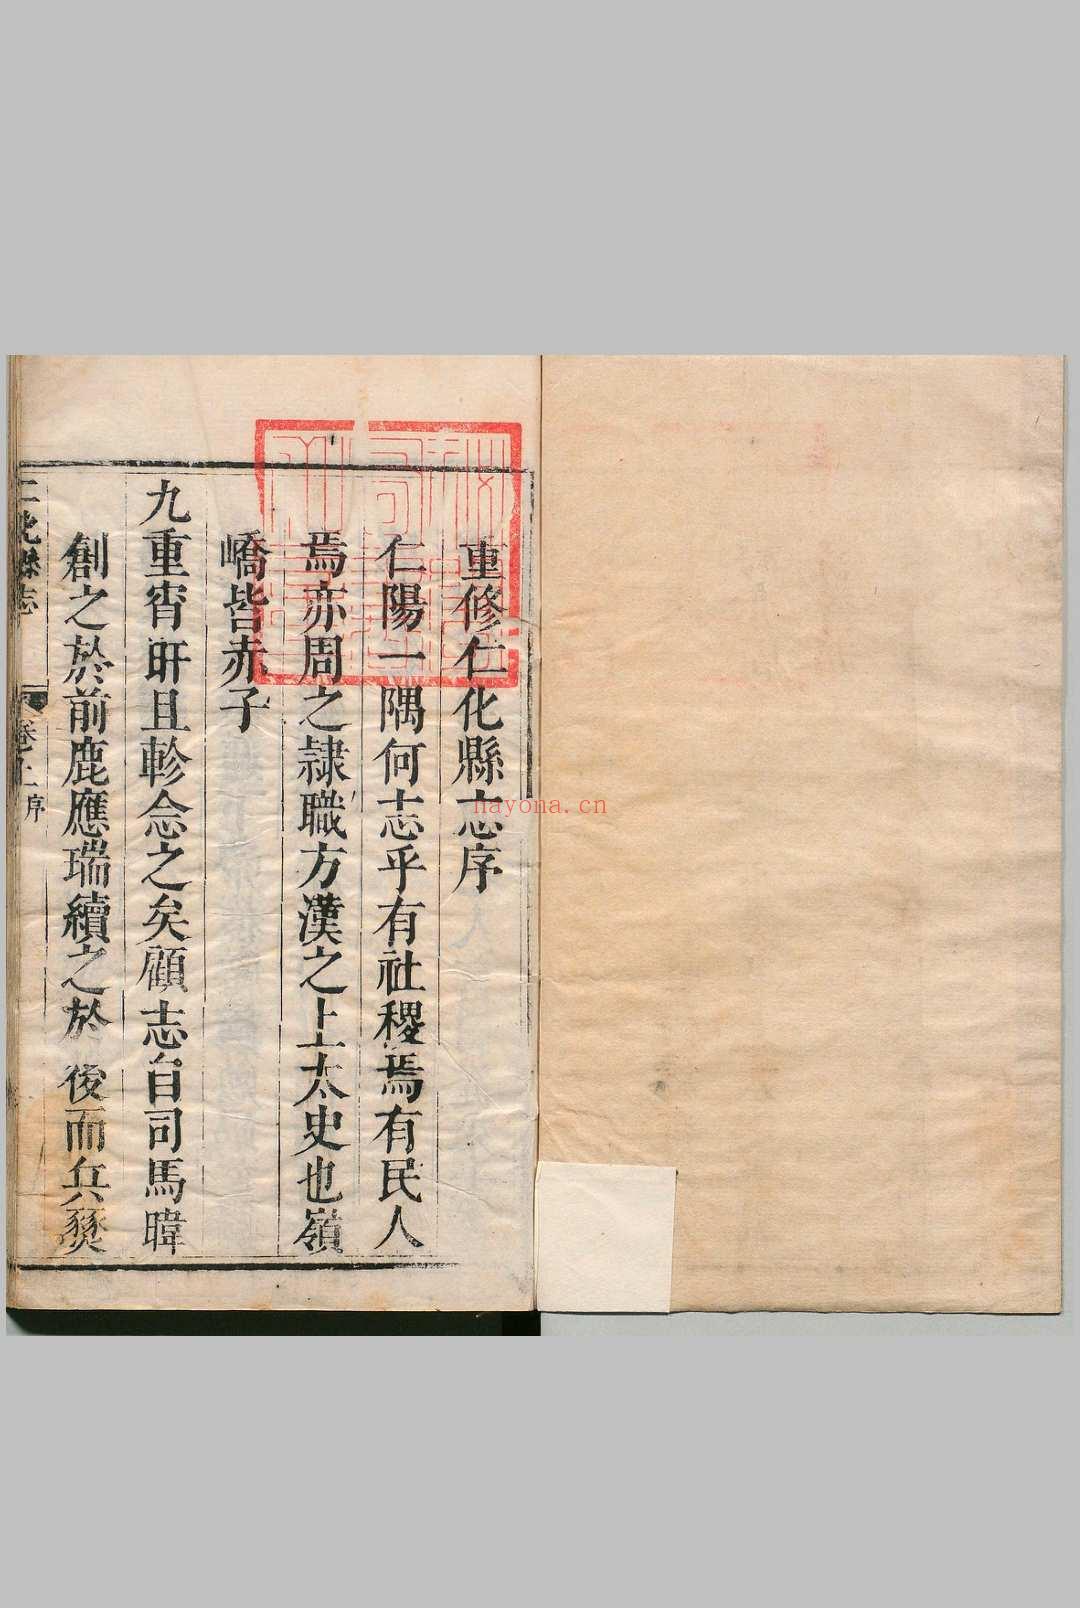 重修仁化縣志序
仁陽一隅何志乎有社稷焉有民人
焉亦周之隷職方漢之上太史也嶺
嶠皆赤子
九重宵旰且軫念之矣顧志自司馬暐
創之於前鹿應瑞續之於後而兵燹
仁化縣志
卷之上序
nayona.cn